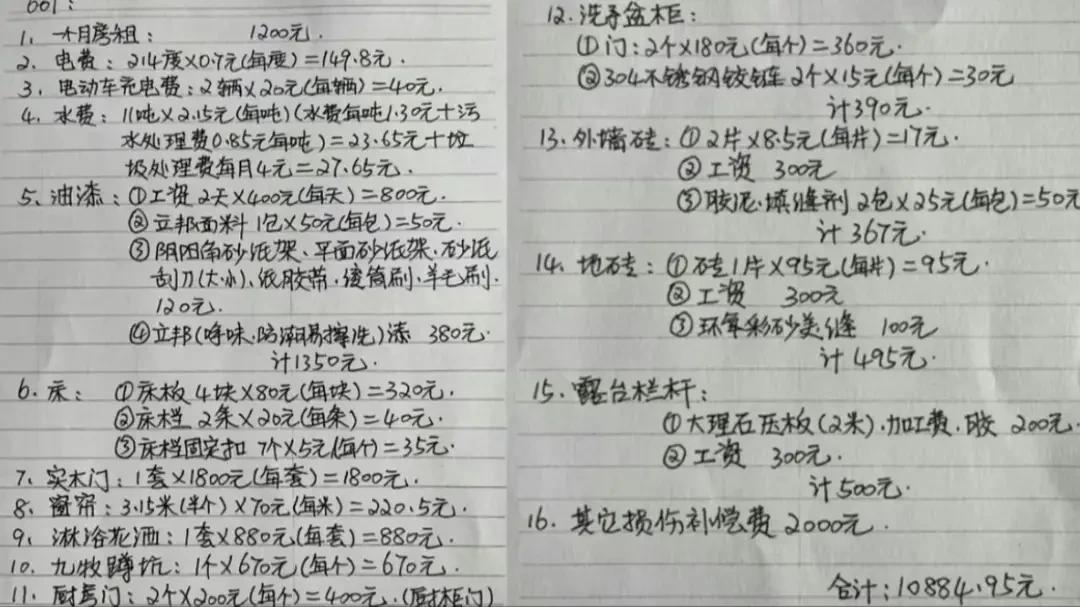 001:
1、一个月房租: 1200元.
2、电费:214度×0.7元(每度)=149.8元.
3、电动车充电费:2辆×20元(每辆)=40元.
4、水费:11吨×2.15元(每吨)(水费每吨1.30元+污
水处理费0.85元每吨)=23.65元+垃
圾处理费每月4元=27.65元.
5、油漆:①工资 2天×400元(每天)=800元.
②立邦面料 1包×50元(每包)=50元.
③阴阳角砂纸架、平面砂纸架、砂纸
刮刀(大.小)、纸胶带、滚筒刷、羊毛刷.
120元.
④立邦(净味.防潮易擦洗)漆 380元.
计1350元.
6、床: ①床板 4块×80元(每块)=320元.
②床档 2条×20元(每条)=40元.
③床档固定扣 7个×5元(每个)=35元.
7、实木门:1套×1800元(每套)=1800元.
8、窗帘:3.15米(半个)×70元(每米)=220.5元.
9、淋浴花洒:1套×880元(每套)=880元.
10、九牧蹲坑:1个×670元(每个)=670元.
11、厨房门:2个×200元(每个)=400元.(厨柜门)
12.洗手盆柜:
①门:2个×180元(每个)=360元.
②304不锈钢铰链 2个×15元(每个)=30元
计390元.
13.外墙砖:①2片×8.5元(每片)=17元.
②工资 300元
③胶泥.填缝剂 2包×25元(每包)=50元
计367元.
14、地砖:①砖1片×95元(每片)=95元.
②工资 300元
③环氧彩砂美缝 100元
计495元.
15、露台栏杆:
①大理石压板(2米).加工费.胶 200元.
②工资 300元.
计500元.
16、其它损伤补偿费 2000元.
合计:10884.95元.